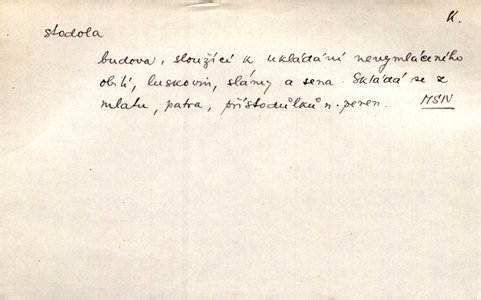 K.
stodola
budova, sloužící k ukládání nevymláceného
obilí, luskovin, slámy a sena. Skládá se z
mlatu, patra, přístodůlků n. peren. MSN